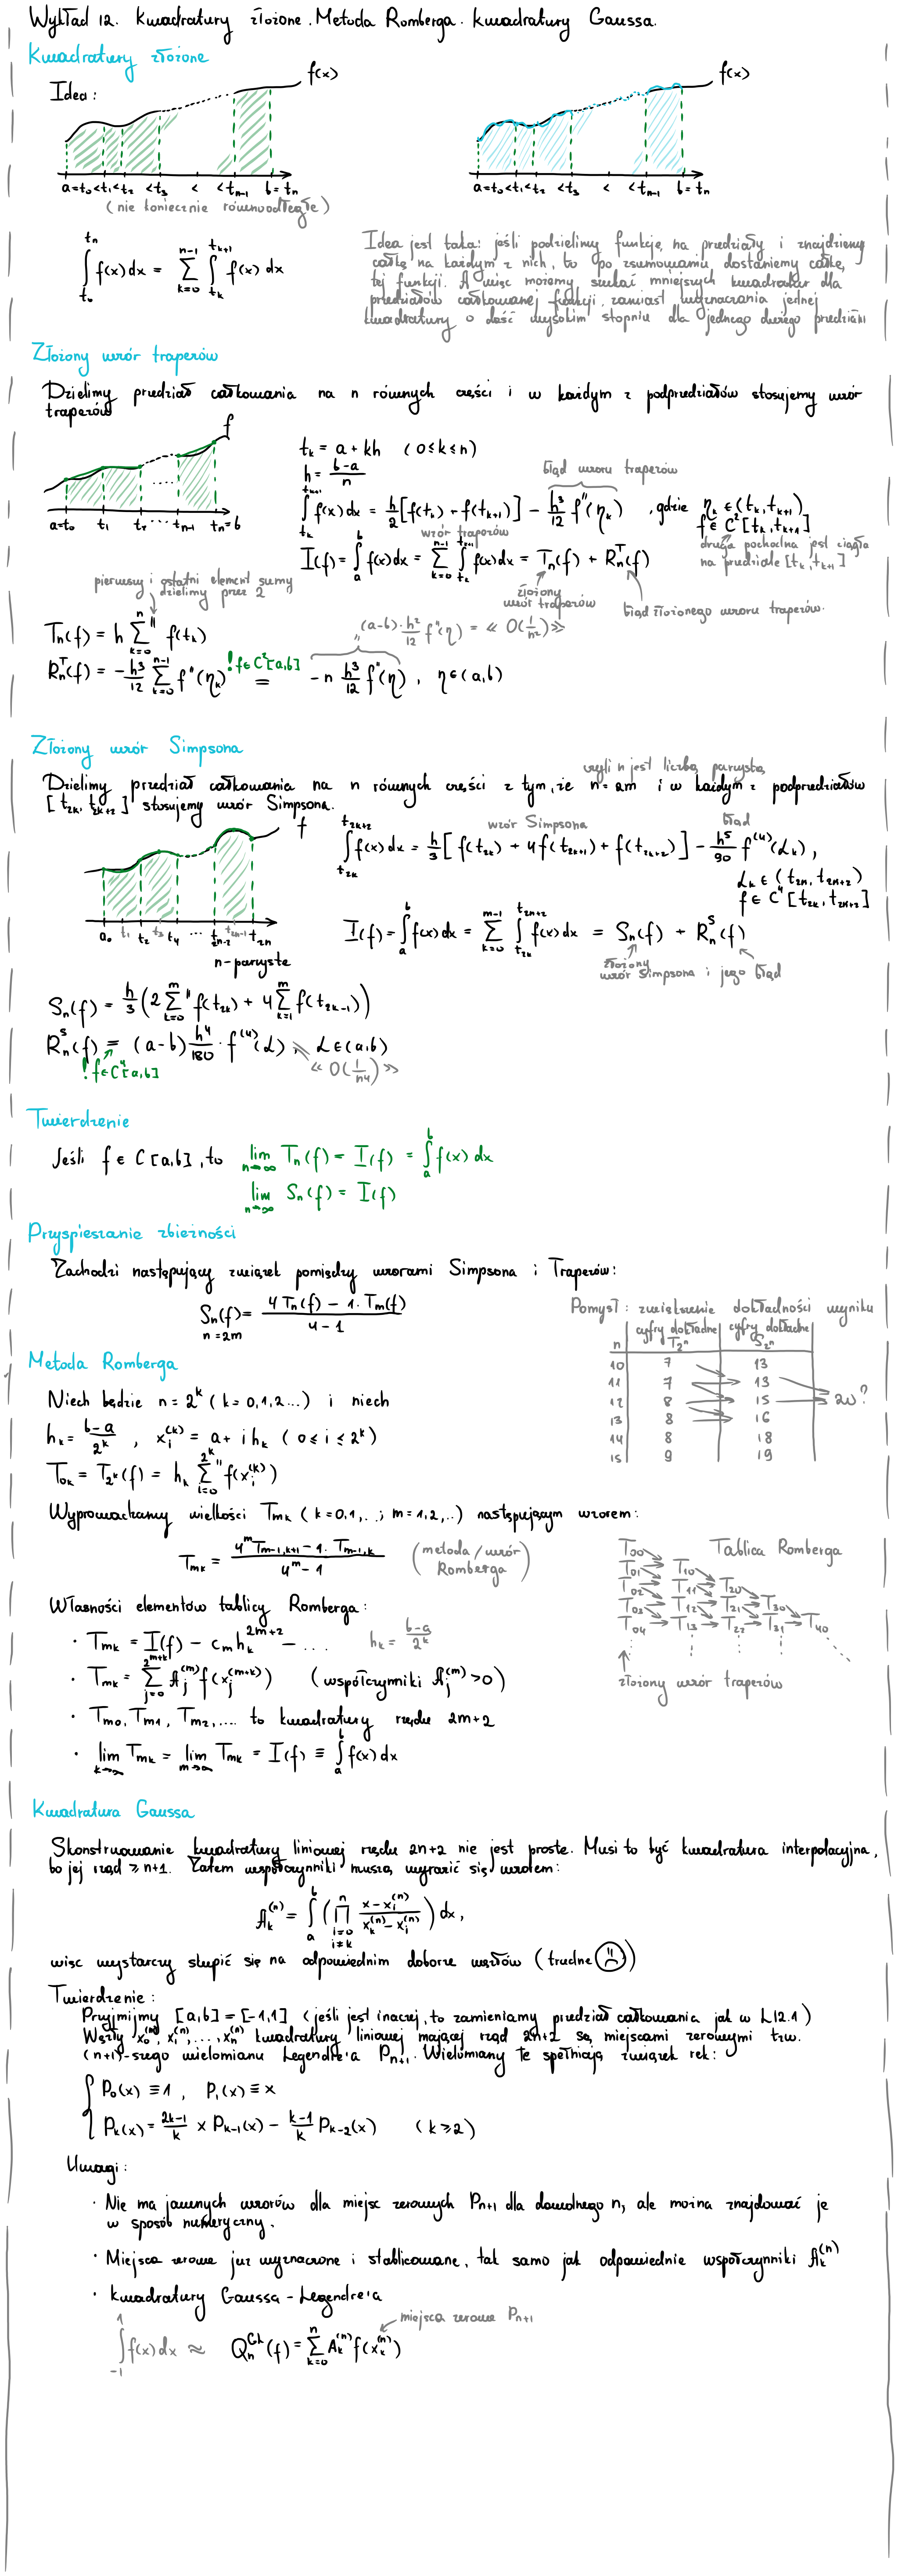 Wykład 12. Kwadratury złożone. Metoda Romberga. Kwadratury Gaussa.
Kwadratury złożone
Idea:
f(x)
f(x)
a=t₀ <t₁ <t₂ <t₃ < <tₙ₋₁ b=tₙ
a=t₀ <t₁ <t₂ <t₃ < <tₙ₋₁ b=tₙ
(nie koniecznie równoodległe)
∫_{t₀}^{tₙ} f(x)dx = Σ_{k=0}^{n-1} ∫_{t_k}^{t_{k+1}} f(x) dx
Idea jest taka: jeśli podzielimy funkcję na przedziały i znajdziemy
całkę na każdym z nich, to po zsumowaniu dostaniemy całkę
tej funkcji. A więc możemy szukać mniejszych kwadratur dla
przedziałów całkowanej funkcji, zamiast wyznaczania jednej
kwadratury o dość wysokim stopniu dla jednego dużego przedziału
Złożony wzór trapezów
Dzielimy przedział całkowania na n równych części i w każdym z podprzedziałów stosujemy wzór
trapezów
f
a=t₀ t₁ t₂ .... tₙ₋₁ tₙ=b
t_k = a + kh (0≤k≤n)
h = (b-a)/n
błąd wzoru trapezów
∫_{t_k}^{t_{k+1}} f(x)dx = h/2 [f(t_k) + f(t_{k+1})] - h³/12 f''(η_k) , gdzie η_k ∈ (t_k, t_{k+1})
f ∈ C²[t_k, t_{k+1}]
wzór trapezów
druga pochodna jest ciągła
na przedziale [t_k, t_{k+1}]
I(f) = ∫_a^b f(x)dx = Σ_{k=0}^{n-1} ∫_{t_k}^{t_{k+1}} f(x)dx = Tₙ(f) + Rₙᵀ(f)
złożony
wzór trapezów
błąd złożonego wzoru trapezów.
pierwszy i ostatni element sumy
dzielimy przez 2
Tₙ(f) = h Σ''_{k=0}^{n} f(t_k)
(a-b)·h²/12 f''(η) = « O(1/n²) »
Rₙᵀ(f) = -h³/12 Σ_{k=0}^{n-1} f''(η_k) = -n h³/12 f''(η) , η∈(a,b)
! f∈C²[a,b]
Złożony wzór Simpsona
czyli n jest liczbą parzystą
Dzielimy przedział całkowania na n równych części z tym, że n=2m i w każdym z podprzedziałów
[t_{2k}, t_{2k+2}] stosujemy wzór Simpsona.
f
a₀ t₁ t₂ t₃ t₄ ... t_{2n-2} t_{2n-1} t_{2n}
n-parzyste
wzór Simpsona
błąd
∫_{t_{2k}}^{t_{2k+2}} f(x)dx = h/3 [f(t_{2k}) + 4f(t_{2k+1}) + f(t_{2k+2})] - h⁵/90 f⁽⁴⁾(α_k),
α_k ∈ (t_{2k}, t_{2k+2})
f ∈ C⁴[t_{2k}, t_{2k+2}]
I(f) = ∫_a^b f(x)dx = Σ_{k=0}^{m-1} ∫_{t_{2k}}^{t_{2k+2}} f(x)dx = Sₙ(f) + Rₙˢ(f)
złożony
wzór Simpsona i jego błąd
Sₙ(f) = h/3 (2 Σ''_{k=0}^{m} f(t_{2k}) + 4 Σ_{k=1}^{m} f(t_{2k-1}))
Rₙˢ(f) = (a-b) h⁴/180 · f⁽⁴⁾(α), α∈(a,b)
! f∈C⁴[a,b]
« O(1/n⁴) »
Twierdzenie
Jeśli f ∈ C[a,b], to lim_{n→∞} Tₙ(f) = I(f) = ∫_a^b f(x) dx
lim_{n→∞} Sₙ(f) = I(f)
Przyspieszanie zbieżności
Zachodzi następujący związek pomiędzy wzorami Simpsona i Trapezów:
Sₙ(f) = (4Tₙ(f) - 1·T_m(f))/(4-1)
n=2m
Pomysł: zwiększenie dokładności wyniku
n | cyfry dokładne T_{2ⁿ} | cyfry dokładne S_{2ⁿ}
10 7 13
11 7 13
12 8 15 20?
13 8 16
14 8 18
15 9 19
Metoda Romberga
Niech będzie n = 2ᵏ (k = 0,1,2...) i niech
h_k = (b-a)/2ᵏ , x_i^{(k)} = a + i h_k (0 ≤ i ≤ 2ᵏ)
T_{0k} = T_{2ᵏ}(f) = h_k Σ''_{i=0}^{2ᵏ} f(x_i^{(k)})
Wyprowadzamy wielkości T_{mk} (k=0,1,..; m=1,2,..) następującym wzorem:
T_{mk} = (4ᵐ T_{m-1,k+1} - 1·T_{m-1,k})/(4ᵐ - 1)
(metoda/wzór
Romberga)
Tablica Romberga
T₀₀
T₀₁ T₁₀
T₀₂ T₁₁ T₂₀
T₀₃ T₁₂ T₂₁ T₃₀
T₀₄ T₁₃ T₂₂ T₃₁ T₄₀
złożony wzór trapezów
Własności elementów tablicy Romberga:
· T_{mk} = I(f) - c_m h_k^{2m+2} - ... h_k = (b-a)/2ᵏ
· T_{mk} = Σ_{j=0}^{2^{m+k}} A_j^{(m)} f(x_j^{(m+k)}) (współczynniki A_j^{(m)} > 0)
· T_{m0}, T_{m1}, T_{m2}, .... to kwadratury rzędu 2m+2
· lim_{k→∞} T_{mk} = lim_{m→∞} T_{mk} = I(f) ≡ ∫_a^b f(x)dx
Kwadratura Gaussa
Skonstruowanie kwadratury liniowej rzędu 2n+2 nie jest proste. Musi to być kwadratura interpolacyjna,
bo jej rząd ≥ n+1. Zatem współczynniki muszą wyrazić się wzorem:
A_k^{(n)} = ∫_a^b (∏_{i=0, i≠k}^{n} (x - x_i^{(n)})/(x_k^{(n)} - x_i^{(n)})) dx,
więc wystarczy skupić się na odpowiednim doborze węzłów (trudne ☹)
Twierdzenie:
Przyjmijmy [a,b] = [-1,1] (jeśli jest inaczej, to zamieniamy przedział całkowania jak w L12.1)
Węzły x₀^{(n)}, x₁^{(n)}, ..., xₙ^{(n)} kwadratury liniowej mającej rząd 2n+2 są miejscami zerowymi tzw.
(n+1)-szego wielomianu Legendre'a Pₙ₊₁. Wielomiany te spełniają związek rek:
{ P₀(x) ≡ 1, P₁(x) ≡ x
P_k(x) = (2k-1)/k x P_{k-1}(x) - (k-1)/k P_{k-2}(x) (k≥2)
Uwagi:
· Nie ma jawnych wzorów dla miejsc zerowych Pₙ₊₁ dla dowolnego n, ale można znajdować je
w sposób numeryczny.
· Miejsca zerowe już wyznaczone i stablicowane, tak samo jak odpowiednie współczynniki A_k^{(n)}
· Kwadratury Gaussa-Legendre'a
miejsca zerowe Pₙ₊₁
∫_{-1}^{1} f(x)dx ≈ Qₙ^{GL}(f) = Σ_{k=0}^{n} A_k^{(n)} f(x_k^{(n)})